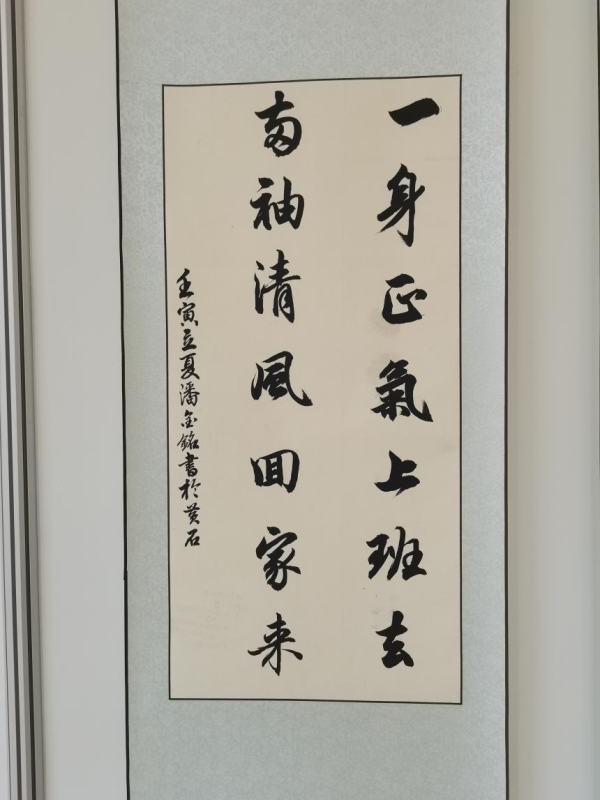 一身正氣上班去
兩袖清風回家来
壬寅立夏潘金銘書於黄石